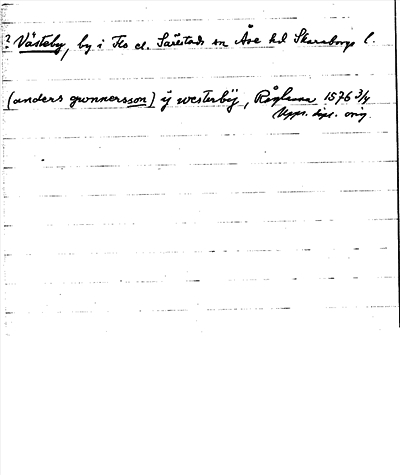 ? Västeby, by i Flo el. Särestads sn Åse hd Skaraborgs l.
(anders gwnnersson) ÿ westerbÿ, Råglanna 1576 3/4
Upps. dipl. orig.